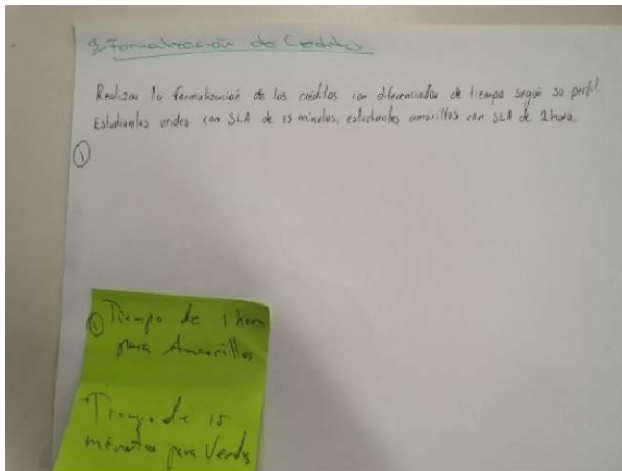 3. Formalización de Créditos
Realizar la formalización de los créditos con diferenciador de tiempo según su perfil.
Estudiantes verdes con SLA de 15 minutos, estudiantes amarillos con SLA de 1 hora.
1
1 Tiempo de 1 hora
para Amarillos
Tiempo de 15
minutos para Verdes